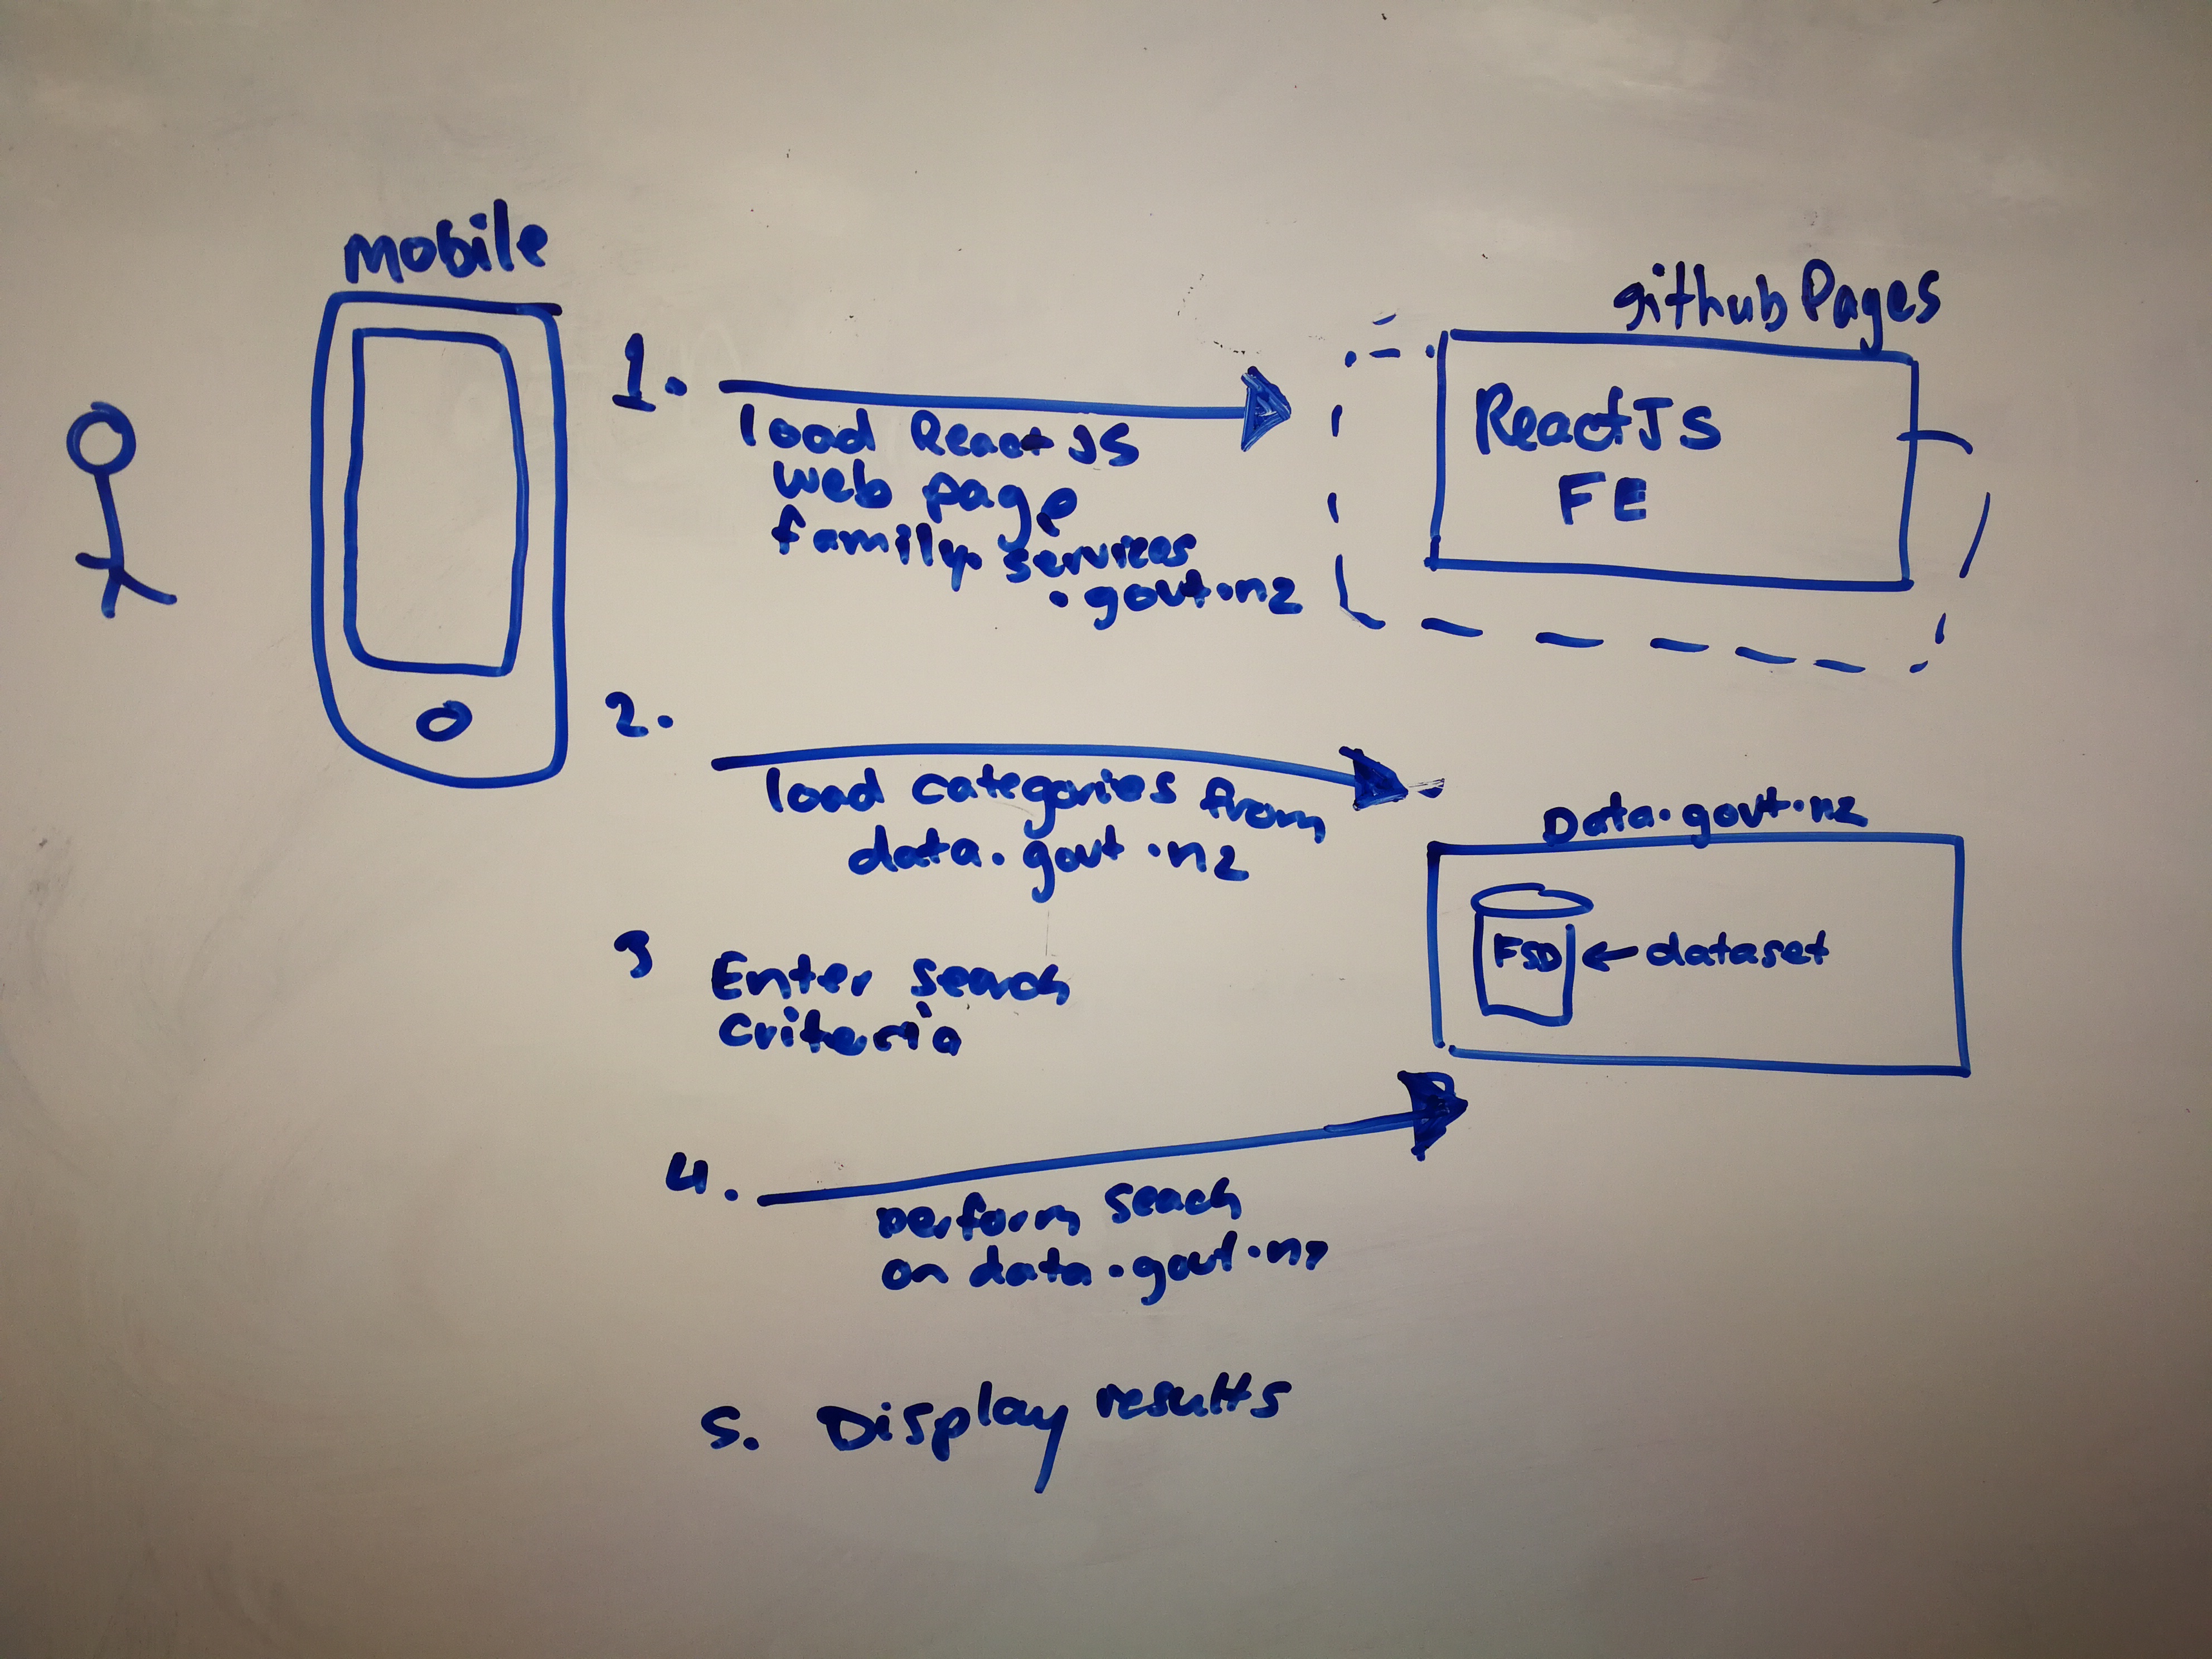 Mobile
github Pages
1.
load React JS
web page
family services
.govt.nz
ReactJS
FE
2.
load categories from
data.govt.nz
Data.govt.nz
FSD ← dataset
3 Enter search
criteria
4.
perform seach
on data.govt.nz
5. Display results